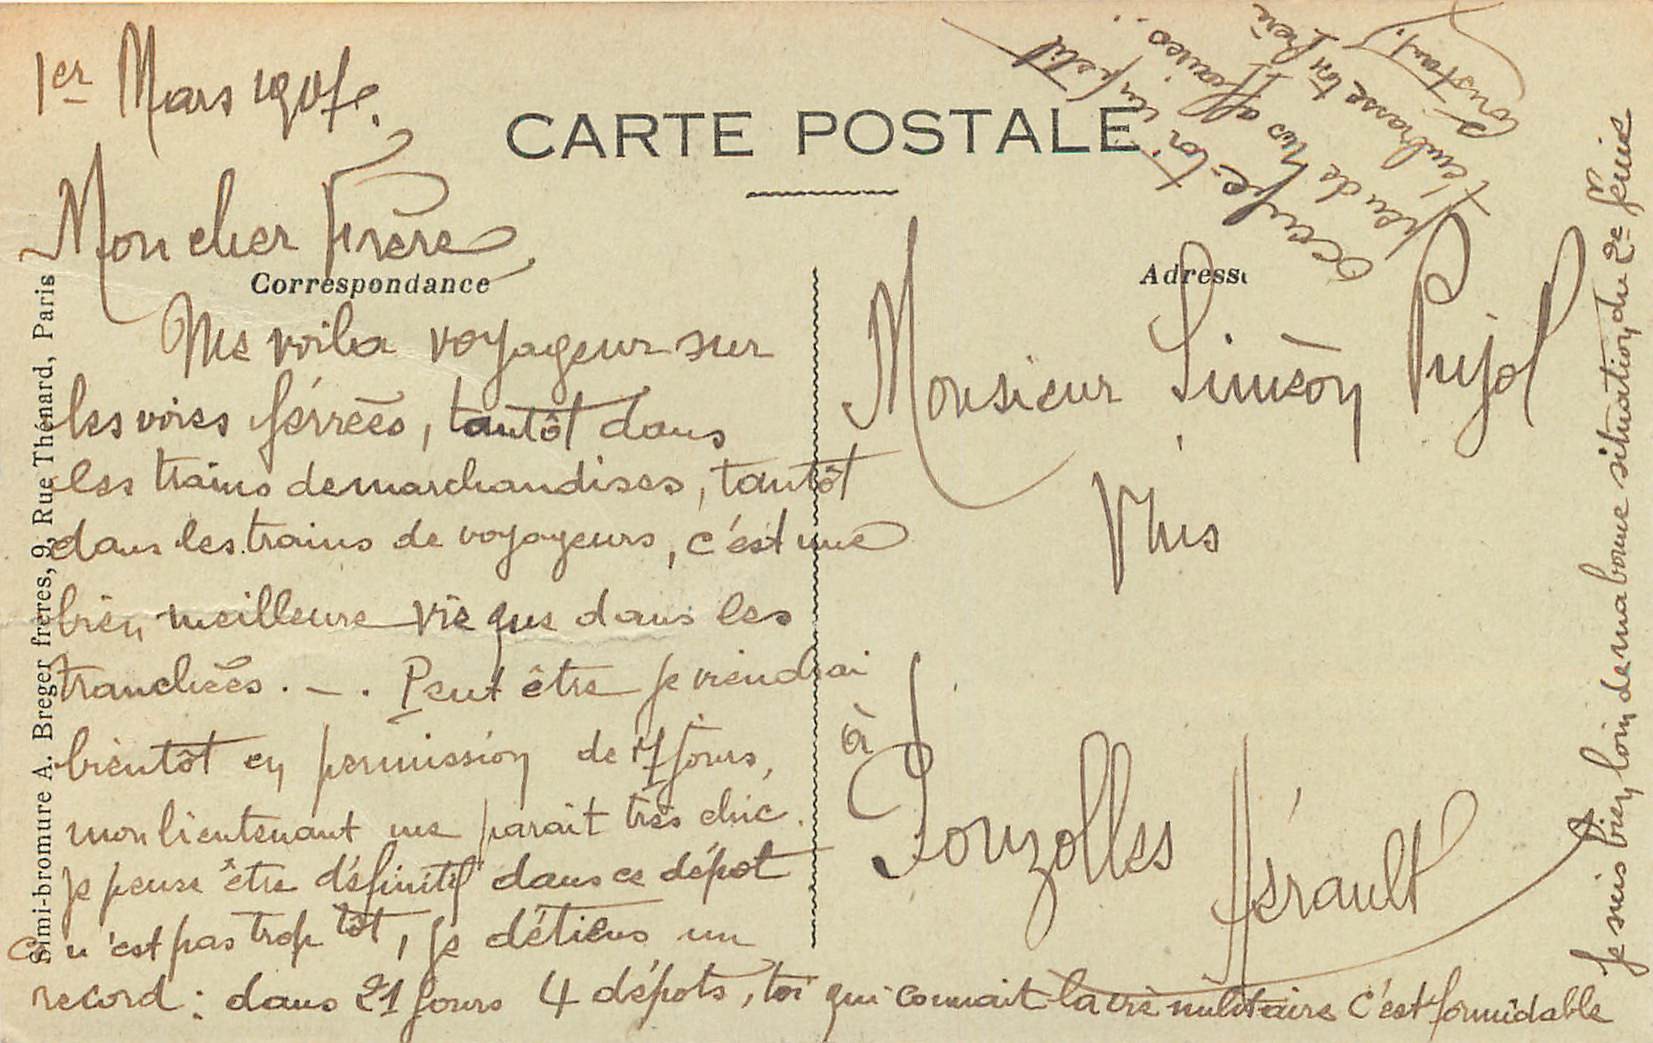 1er Mars 1917.
CARTE POSTALE
Mon cher Frère,
Correspondance
Me voila voyageur sur
les voies férrées, tantôt dans
les trains de marchandises, tantôt
dans les trains de voyageurs, c'est une
bien meilleure vie que dans les
tranchées. — . Peut être je viendrai
bientôt en permission de 7 jours,
mon lieutenant me parait très chic.
je pense être définitif dans ce dépot
ce n'est pas trop tôt, je détiens un
record : dans 21 jours 4 dépots, toi qui connait la vie militaire c'est formidable
Je suis bien loin de ma bonne situation du 2e génie
occupe-toi un petit
peu de nos affaires..
t'embrasse ton frère
Constant.
Adresse
Monsieur Siméon Pujol
à
Pouzolles
Hérault
Simi-bromure A. Breger frères, 9, Rue Thénard, Paris